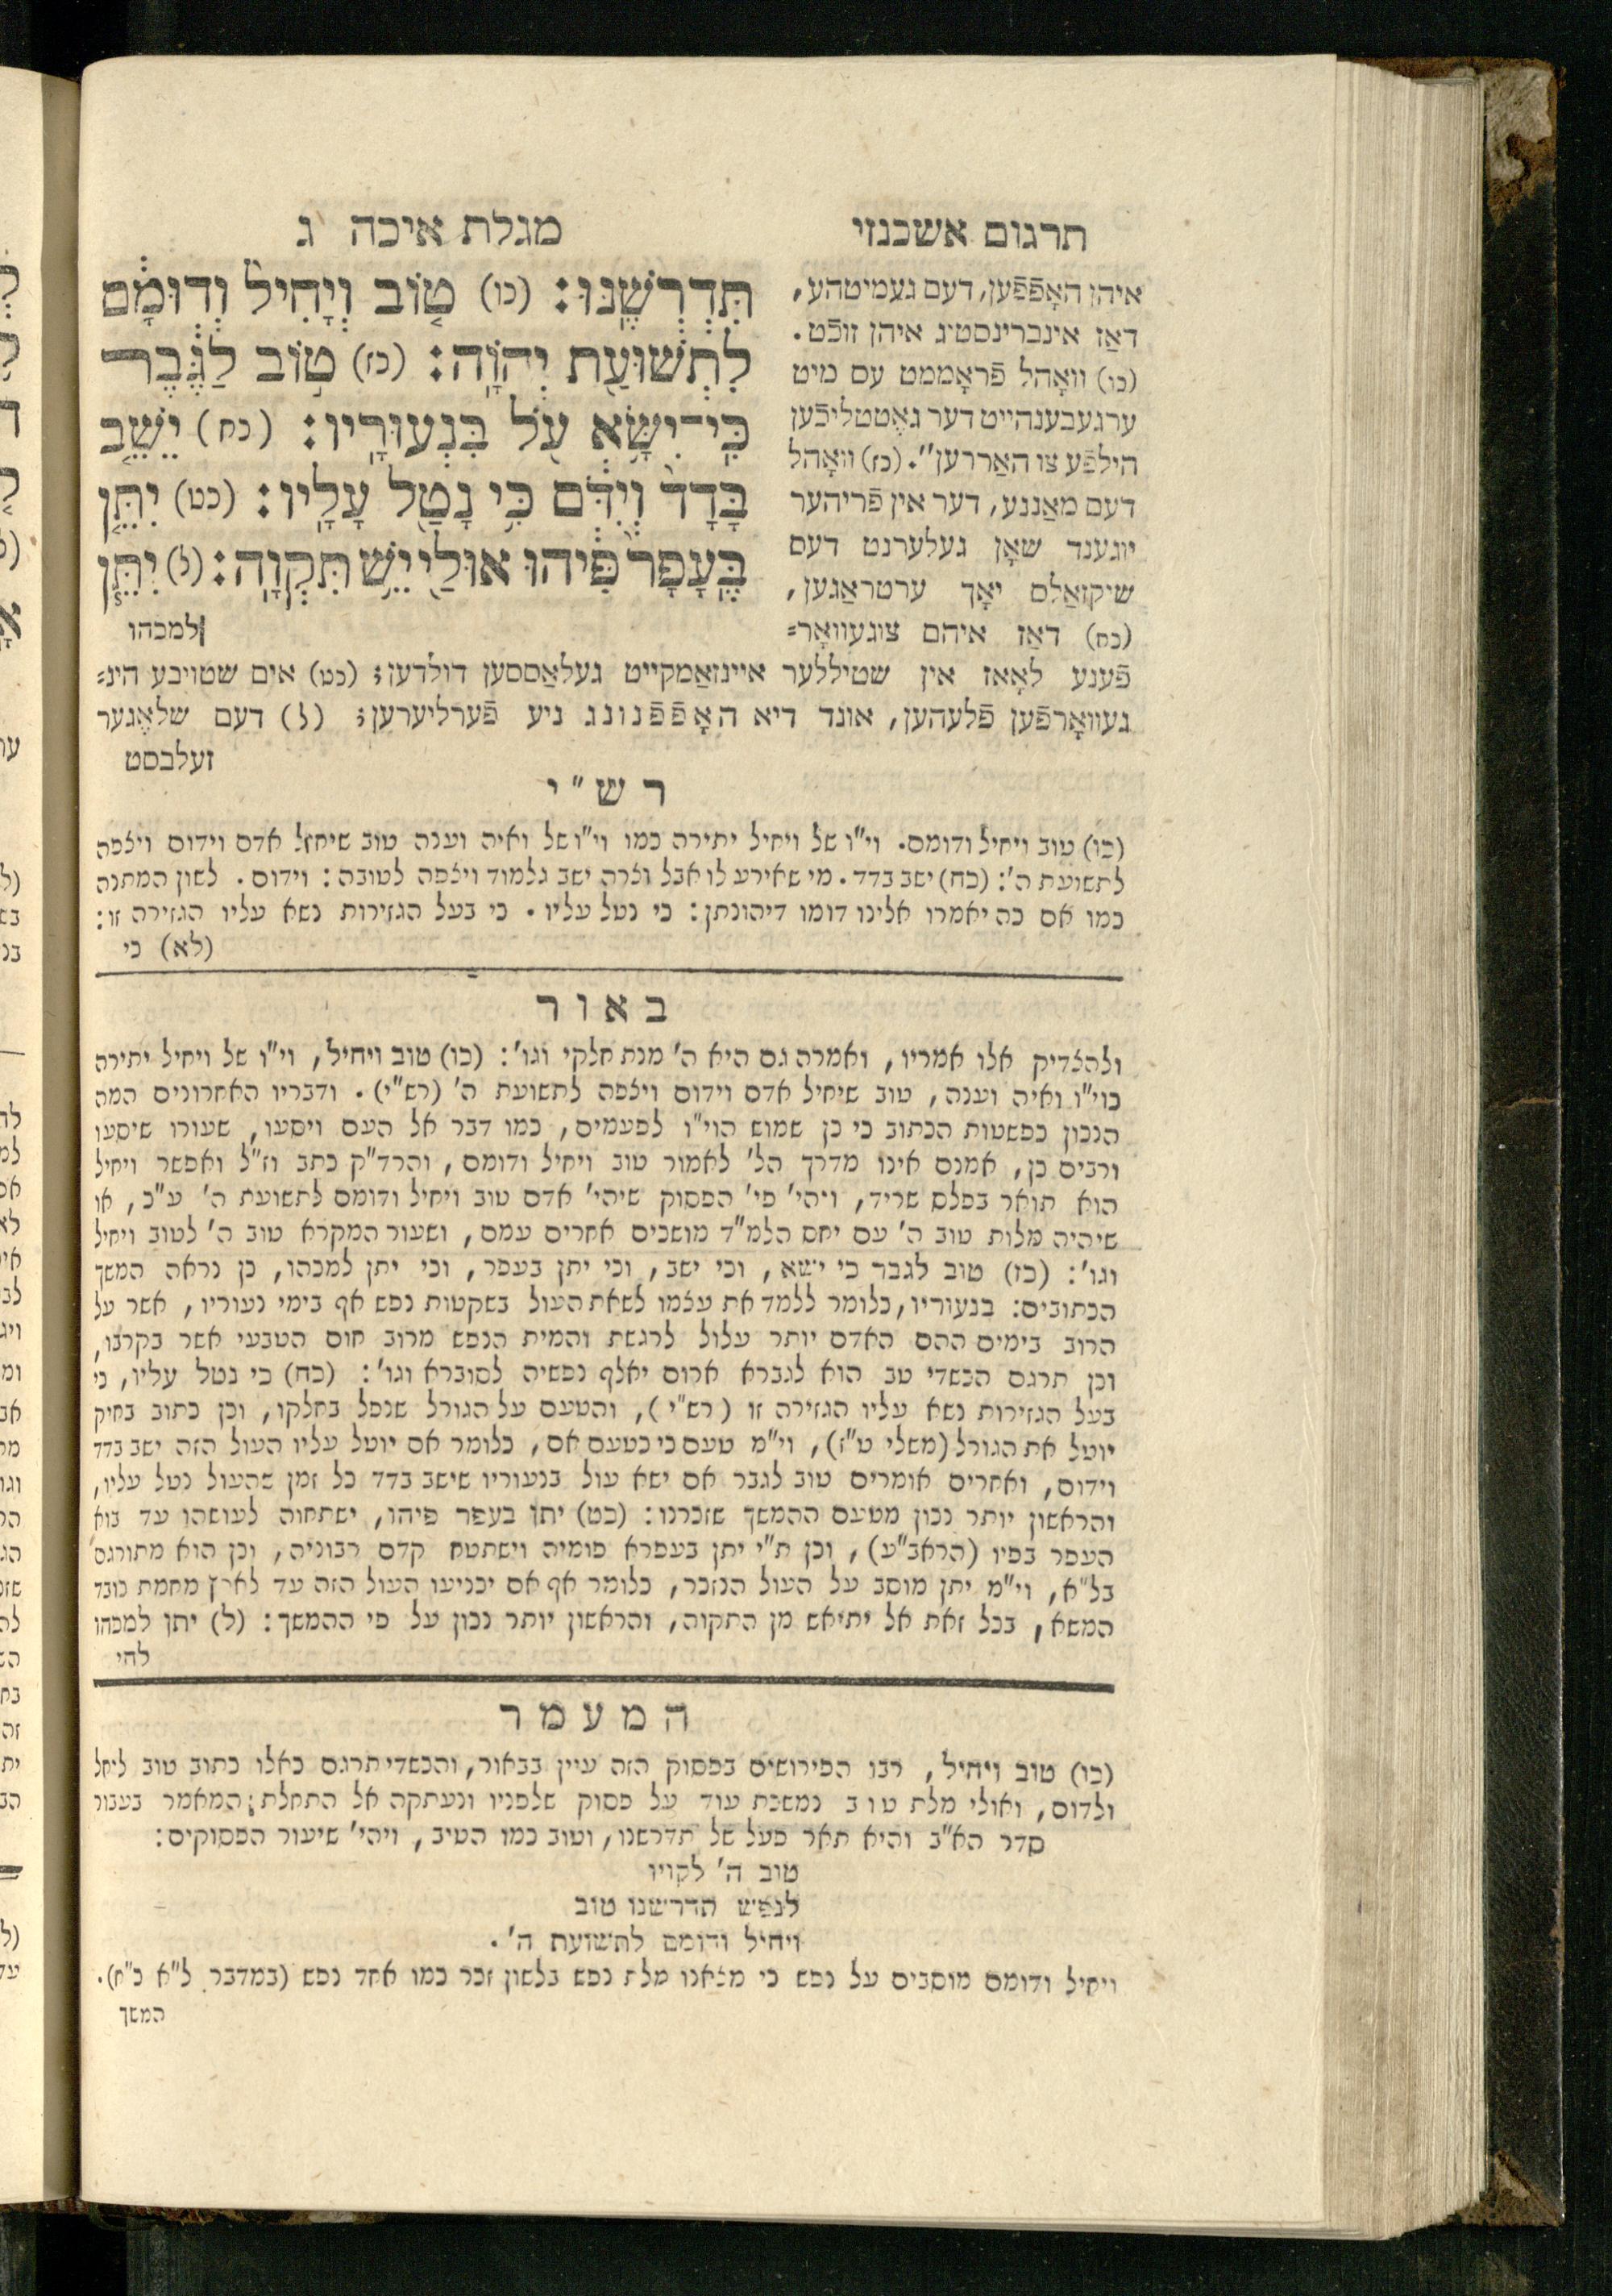 תרגום אשכנזי
מגלת איכה ג
תִּדְרְשֶׁנּוּ: (כו) ט֤וֹב וְיָחִיל֙ וְדוּמָ֔ם
לִתְשׁוּעַ֖ת יְהוָֹֽה: (כז) ט֣וֹב לַגֶּ֔בֶר
כִּֽי־יִשָּׂ֥א עֹ֖ל בִּנְעוּרָֽיו: (כח) יֵשֵׁ֤ב
בָּדָד֙ וְיִדֹּ֔ם כִּ֥י נָטַ֖ל עָלָֽיו: (כט) יִתֵּ֤ן
בֶּֽעָפָר֙ פִּ֔יהוּ אוּלַ֖י יֵ֥שׁ תִּקְוָֽה: (ל) יִתֵּ֧ן
למכהו
איהן האָפֿפֿען, דעם געמיטהע,
דאַז אינברינסטיג איהן זוכֿט.
(כו) וואָהל פֿראָממט עס מיט
ערגעבענהייט דער גאָטטליכֿען
הילפֿע צו האַררען". (כז) וואָהל
דעם מאַננע, דער אין פֿריהער
יוגענד שאָן געלערנט דעם
שיקזאַלס יאָך ערטראַגען,
(כח) דאז איהם צוגעוואָר=
פֿענע לאָאז אין שטיללער איינזאַמקייט געלאַססען דולדען; (כט) אים שטויבע הינ=
געוואָרפֿען פֿלעהען, אונד דיא האָפֿפֿנונג ניע פֿערליערען; (ל) דעם שלאָגער
זעלבסט
רש"י
(כו) טוב ויחיל ודומם. וי"ו של ויחיל יתירה כמו וי"ו של ואיה וענה טוב שיחיל אדם וידום ויצפה
לתשועת ה': (כח) ישב בדד. מי שאירע לו אבל וצרה ישב גלמוד ויצפה לטובה: וידום. לשון המתנה
כמו אם כה יאמרו אלינו דומו דיהונתן: כי נטל עליו. כי בעל הגזירות נשא עליו הגזירה זו:
(לא) כי
באור
ולהצדיק אלו אמריו, ואמרה גם היא ה' מנת חלקי וגו': (כו) טוב ויחיל, וי"ו של ויחיל יתירה
כוי"ו ואיה וענה, טוב שיחיל אדם וידום ויצפה לתשועת ה' (רש"י). ודבריו האחרונים המה
הנכון כפשטות הכתוב כי כן שמוש הוי"ו לפעמים, כמו דבר אל העם ויסעו, שעורו שיסעו
ורבים כן, אמנם אינו מדרך הל' לאמור טוב ויחיל ודומם, והרד"ק כתב וז"ל ואפשר ויחיל
הוא תואר בפלס שריד, ויהי' פי' הפסוק שיהי' אדם טוב ויחיל ודומם לתשועת ה' ע"כ, או
שיהיה מלות טוב ה' עם יחס הלמ"ד מושכים אחרים עמם, ושעור המקרא טוב ה' לטוב ויחיל
וגו': (כז) טוב לגבר כי ישא, וכי ישב, וכי יתן בעפר, וכי יתן למכהו, כן נראה המשך
הכתובים: בנעוריו, כלומר ללמד את עצמו לשאת העול בשקטות נפש אף בימי נעוריו, אשר על
הרוב בימים ההם האדם יותר עלול לרגשת והמית הנפש מרוב חום הטבעי אשר בקרבו,
וכן תרגם הכשדי טב הוא לגברא ארום יאלף נפשיה לסוברא וגו': (כח) כי נטל עליו, כי
בעל הגזירות נשא עליו הגזירה זו (רש"י), והטעם על הגורל שנפל בחלקו, וכן כתוב בחיק
יוטל את הגורל (משלי ט"ז), וי"מ טעם כי כטעם אם, כלומר אם יוטל עליו העול הזה ישב בדד
וידום, ואחרים אומרים טוב לגבר אם ישא עול בנעוריו שישב בדד כל זמן שהעול נטל עליו,
והראשון יותר נכון מטעם ההמשך שזכרנו: (כט) יתן בעפר פיהו, ישתחוה לעושהו עד בוא
העפר בפיו (הראב"ע), וכן ת"י יתן בעפרא פומיה וישתטח קדם רבוניה, וכן הוא מתורגם
בל"א, וי"מ יתן מוסב על העול הנזכר, כלומר אף אם יכניעו העול הזה עד לארץ מחמת כובד
המשא, בכל זאת אל יתיאש מן התקוה, והראשון יותר נכון על פי ההמשך: (ל) יתן למכהו
לחי
המעמר
(כו) טוב ויחיל, רבו הפירושים בפסוק הזה עיין בבאור, והכשדי תרגם כאלו כתוב טוב ליחל
ולדום, ואולי מלת טוב נמשכת עוד על פסוק שלפניו ונעתקה אל התחלת המאמר בעבור
סדר הא"ב והיא תאר פעל של תדרשנו, וטוב כמו הטיב, ויהי' שיעור הפסוקים:
טוב ה' לקויו
לנפש תדרשנו טוב
ויחיל ודומם לתשועת ה'.
ויחיל ודומם מוסבים על נפש כי מצאנו מלת נפש בלשון זכר כמו אחד נפש (במדבר ל"א כ"ח).
המשך